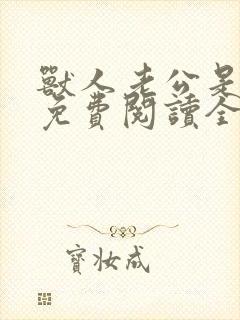 獸人老公是
免費閱讀全
寶妝成